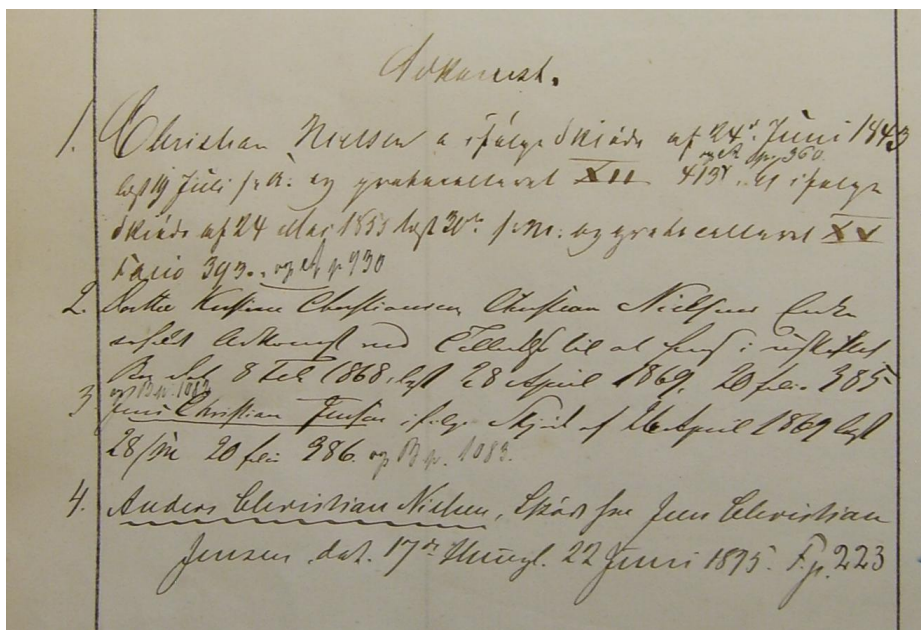 Adkomst.
1. Christian Nielsen ifölge Skiöde af 24de Juni 1843
læst 19 Juli s. A. og protocolleret XII 413 og ifölge
Skiöde af 24 Mai 1855 læst 30te s. M. og protocolleret XV
Folio 393. og p 930
2. Kirstine Christiansen, Christian Nielsens Enke
Adkomst ved Tilladelse til at hens: i uskiftet
Bo dat 8 Feb 1868, læst 28 April 1869, 20 fol. 385
og B p. 1083
3 Jens Christian Jensen ifölge Skjöde af 26 April 1869 læst
28/s. M. 20 fol. 386. og B p. 1083.
4. Anders Christian Nielsen, Skøde fra Jens Christian
Jensen dat. 17de Thingl. 22 Juni 1895. F. p. 223